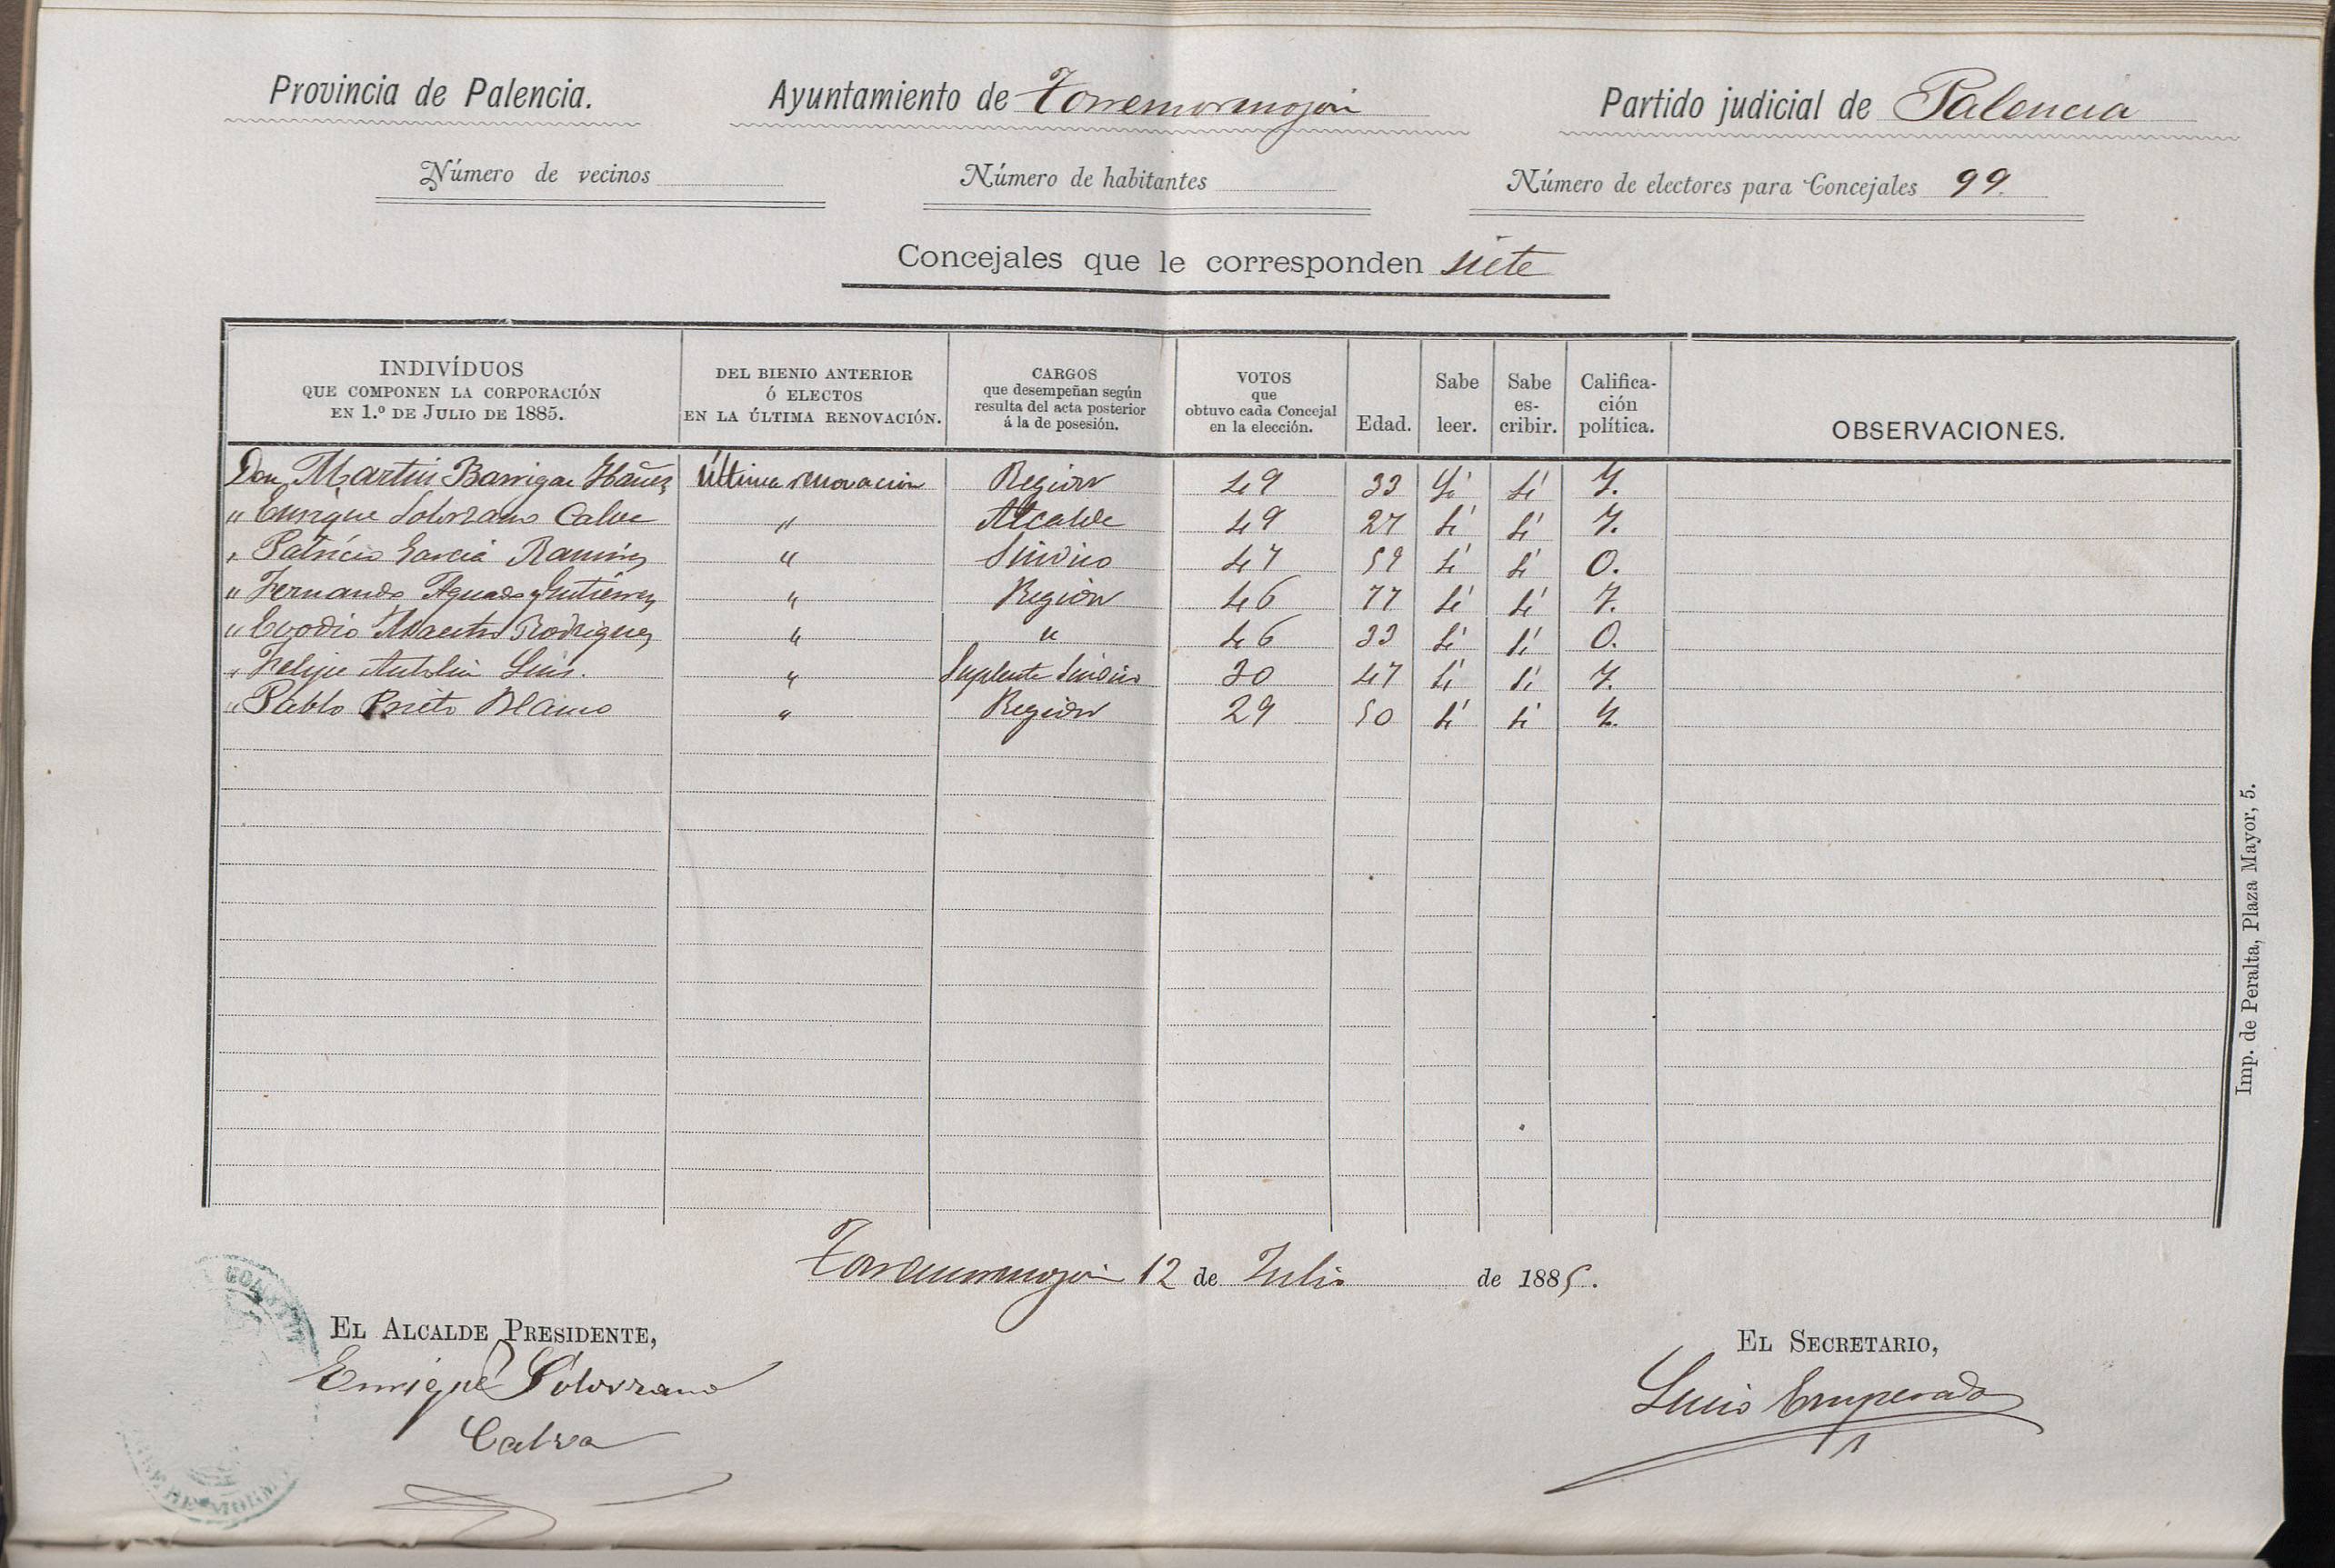 Provincia de Palencia. Ayuntamiento de Torremormojón Partido judicial de Palencia
Número de vecinos Número de habitantes Número de electores para Concejales 99.
Concejales que le corresponden siete
INDIVÍDUOS QUE COMPONEN LA CORPORACIÓN EN 1.º DE JULIO DE 1885. DEL BIENIO ANTERIOR Ó ELECTOS EN LA ÚLTIMA RENOVACIÓN. CARGOS que desempeñan según resulta del acta posterior á la de posesión. VOTOS que obtuvo cada Concejal en la elección. Edad. Sabe leer. Sabe es-cribir. Califica-ción política. OBSERVACIONES.
Don Martin Barrigon Ibañez Última renovacion Regidor 49 33 Sí sí Y.
" Enrique Solorzano Calvo " Alcalde 49 27 sí sí Y.
" Patricio Garcia Ramirez " Sindico 47 59 sí sí O.
" Fernando Aguado y Gutierrez " Regidor 46 77 sí sí Y.
" Evodio Maestro Rodriguez " " 46 33 sí sí O.
" Felipe Antolin Luis. " Suplente Sindico 30 47 sí sí Y.
" Pablo Prieto Blanco " Regidor 29 50 sí sí Y.
Imp. de Peralta, Plaza Mayor, 5.
Torremormojón 12 de Julio de 1885.
EL ALCALDE PRESIDENTE,
Enrique Solorzano
Calvo
EL SECRETARIO,
Emperador